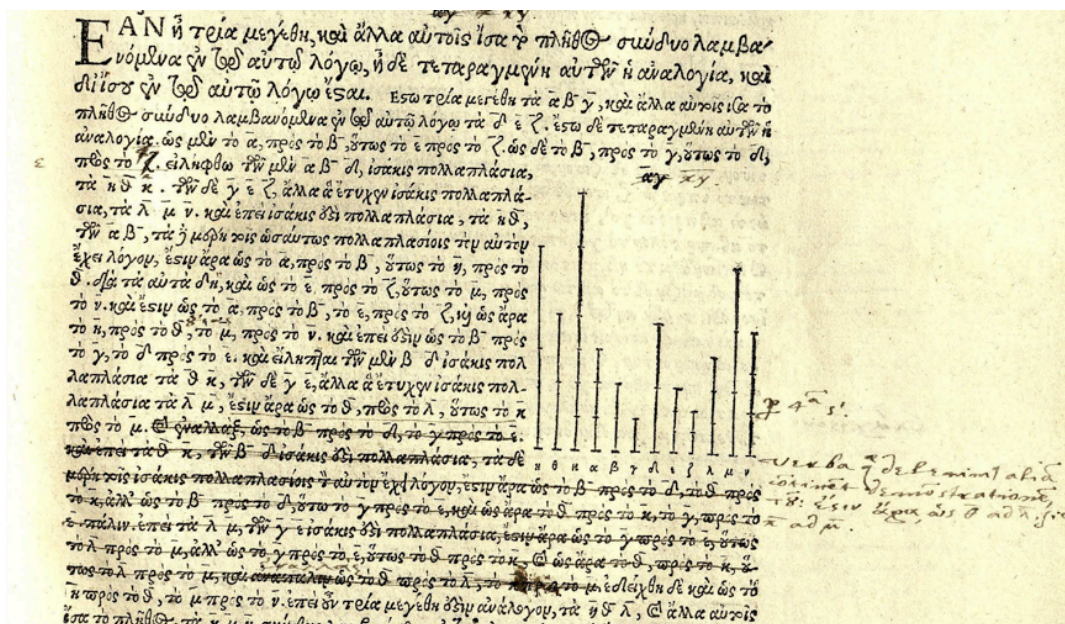 ΕΑΝ ᾖ τρία μεγέθη, καὶ ἄλλα αὐτοῖς ἴσα τὸ πλῆθος σωύδυο λαμβα-
νόμενα ἐν τῷ αὐτῷ λόγῳ, ᾖ δὲ τεταραγμένη αὐτῶν ἡ ἀναλογία, καὶ
διίσου ἐν τῷ αὐτῷ λόγῳ ἔσαι. Εστω τρία μεγέθη τὰ α β γ, καὶ ἄλλα αὐτοῖς ἴσα τὸ
πλῆθος σωύδυο λαμβανόμενα ἐν τῷ αὐτῷ λόγῳ τὰ δ ε ζ. ἔστω δὲ τεταραγμένη αὐτῶν ἡ
ἀναλογία. ὡς μὲν τὸ α, πρὸς τὸ β, οὕτως τὸ ε πρὸς τὸ ζ. ὡς δὲ τὸ β, πρὸς τὸ γ, οὕτως τὸ δ,
ε
πρὸς τὸ ζ. εἰλήφθω τῶν μὲν α β δ, ἰσάκις πολλαπλάσια,
αγ
τὰ η θ κ. τῶν δὲ γ ε ζ, ἄλλα ἃ ἔτυχεν ἰσάκις πολλαπλά-
σια, τὰ λ μ ν. καὶ ἐπεὶ ἰσάκις ὀξὶ πολλαπλάσια, τὰ η θ,
τῶν α β, τὰ δὲ μόρη τοῖς ὡσαύτως πολλαπλασίοις τὸν αὐτὸν
ἔχει λόγον, ἔστιν ἄρα ὡς τὸ α, πρὸς τὸ β, οὕτως τὸ η, πρὸς τὸ
θ. διὰ τὰ αὐτὰ δὴ, καὶ ὡς τὸ ε πρὸς τὸ ζ, οὕτως τὸ μ, πρὸς
τὸ ν. καὶ ἔστιν ὡς τὸ α, πρὸς τὸ β, τὸ ε, πρὸς τὸ ζ, καὶ ὡς ἄρα
τὸ η, πρὸς τὸ θ, τὸ μ, πρὸς τὸ ν. καὶ ἐπεὶ ὀξιν ὡς τὸ β πρὸς
τὸ γ, τὸ δ πρὸς τὸ ε. καὶ εἴληπται τῶν μὲν β δ ἰσάκις πολ
λαπλάσια τὰ θ κ, τῶν δὲ γ ε, ἄλλα ἃ ἔτυχεν ἰσάκις πολ-
λαπλάσια τὰ λ μ, ἔστιν ἄρα ὡς τὸ θ, πρὸς τὸ λ, οὕτως τὸ κ
πρὸς τὸ μ. καὶ ἐναλλὰξ, ὡς τὸ β πρὸς τὸ δ, τὸ γ πρὸς τὸ ε.
καὶ ἐπεὶ τὰ θ κ, τῶν β δ ἰσάκις ὀξὶ πολλαπλάσια, τὰ δὲ
μόρη τοῖς ἰσάκις πολλαπλασίοις τὸν αὐτὸν ἔχει λόγον, ἔστιν ἄρα ὡς τὸ β πρὸς τὸ δ, τὸ θ πρὸς
τὸ κ, ἀλλ' ὡς τὸ β πρὸς τὸ δ, οὕτω τὸ γ πρὸς τὸ ε, καὶ ὡς ἄρα τὸ θ πρὸς τὸ κ, τὸ γ, πρὸς τὸ
ε πάλιν. ἐπεὶ τὰ λ μ, τῶν γ ε ἰσάκις ὀξὶ πολλαπλάσια, ἔστιν ἄρα ὡς τὸ γ πρὸς τὸ ε, οὕτως
τὸ λ πρὸς τὸ μ, ἀλλ' ὡς τὸ γ πρὸς τὸ ε, οὕτως τὸ θ πρὸς τὸ κ, καὶ ὡς ἄρα τὸ θ, πρὸς τὸ κ, οὕ-
τως τὸ λ πρὸς τὸ μ, καὶ ἀνάπαλιν ὡς τὸ θ πρὸς τὸ λ, τὸ κ πρὸς τὸ μ, ἐδείχθη δὲ καὶ ὡς τὸ
η πρὸς τὸ θ, τὸ μ πρὸς τὸ ν. ἐπεὶ οὖν τρία μεγέθη ὀξὶν ἀνάλογον, τὰ η θ λ, καὶ ἄλλα αὐτοῖς
ἴσα τὸ πλῆθος, τὰ κ μ ν
η θ κ α β γ δ ε ζ λ μ ν
p 4ᵃ
verba q delenim alia
continet demostratione
ἔστιν ἄρα ὡς θ ad
ad μ.